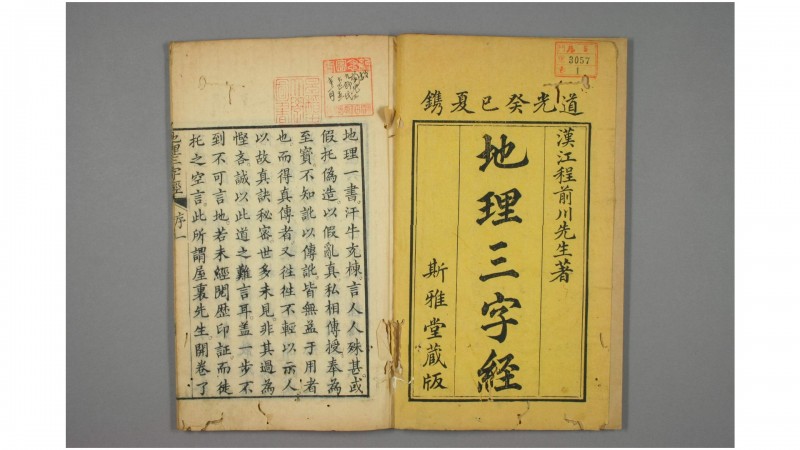 道光癸巳夏鐫
漢江程前川先生著
地理三字經
斯雅堂藏版
3057
1
地理一書汗牛充棟言人人殊甚或
假托偽造以假亂真私相傳授奉為
至寶不知訛以傳訛皆無益于用者
也而得真傳者又徃徃不輕以示人
以故真訣秘密世多未見非其過為
慳吝誠以此道之難言耳盖一步不
到不可言地若未經閱歴印証而徒
托之空言此所謂屋裏先生開卷了
地理三字經
序
一